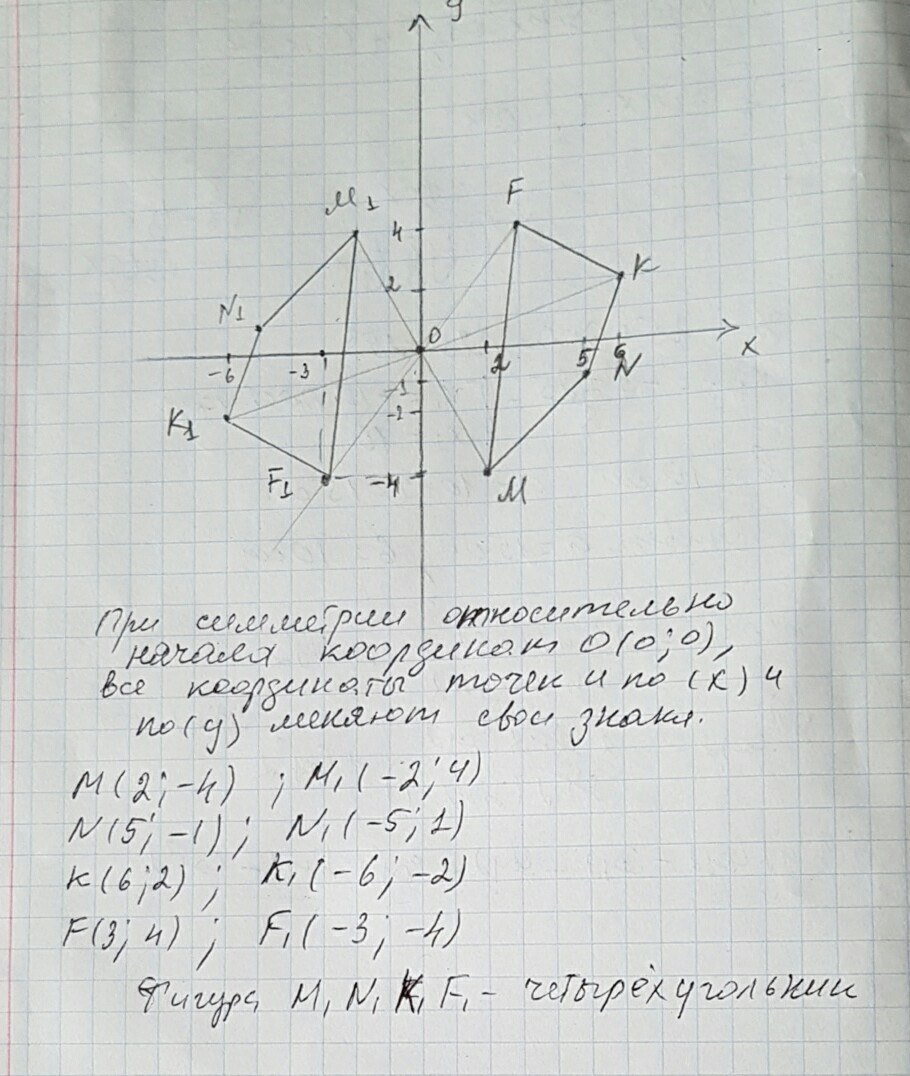 y
M₁
F
4
K
2
N₁
O
x
-6
-3
2
5
6
N
-1
-2
K₁
F₁
-4
M
При симметрии относительно
начала координат O(0;0),
все координаты точек и по (x) и
по (y) меняют свои знаки.
M(2;-4) ; M₁(-2;4)
N(5;-1); N₁(-5;1)
K(6;2) ; K₁(-6;-2)
F(3;4) ; F₁(-3;-4)
Фигура M₁N₁K₁F₁ - четырёхугольник